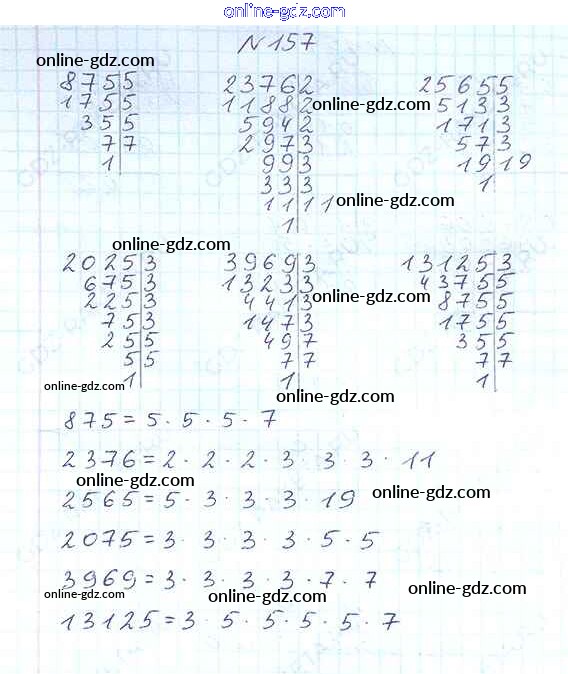 online-gdz.com
N 157
online-gdz.com
875|5
175|5
35|5
7|7
1|
2376|2
1188|2
594|2
297|3
99|3
33|3
11|11
1|
online-gdz.com
online-gdz.com
2565|5
513|3
171|3
57|3
19|19
1|
online-gdz.com
2025|3
675|3
225|3
75|3
25|5
5|5
1|
online-gdz.com
3969|3
1323|3
441|3
147|3
49|7
7|7
1|
online-gdz.com
online-gdz.com
13125|3
4375|5
875|5
175|5
35|5
7|7
1|
online-gdz.com
875 = 5 · 5 · 5 · 7
2376 = 2 · 2 · 2 · 3 · 3 · 3 · 11
online-gdz.com
online-gdz.com
2565 = 5 · 3 · 3 · 3 · 19
2075 = 3 · 3 · 3 · 3 · 5 · 5
3969 = 3 · 3 · 3 · 3 · 7 · 7
online-gdz.com
online-gdz.com
online-gdz.com
13125 = 3 · 5 · 5 · 5 · 5 · 7